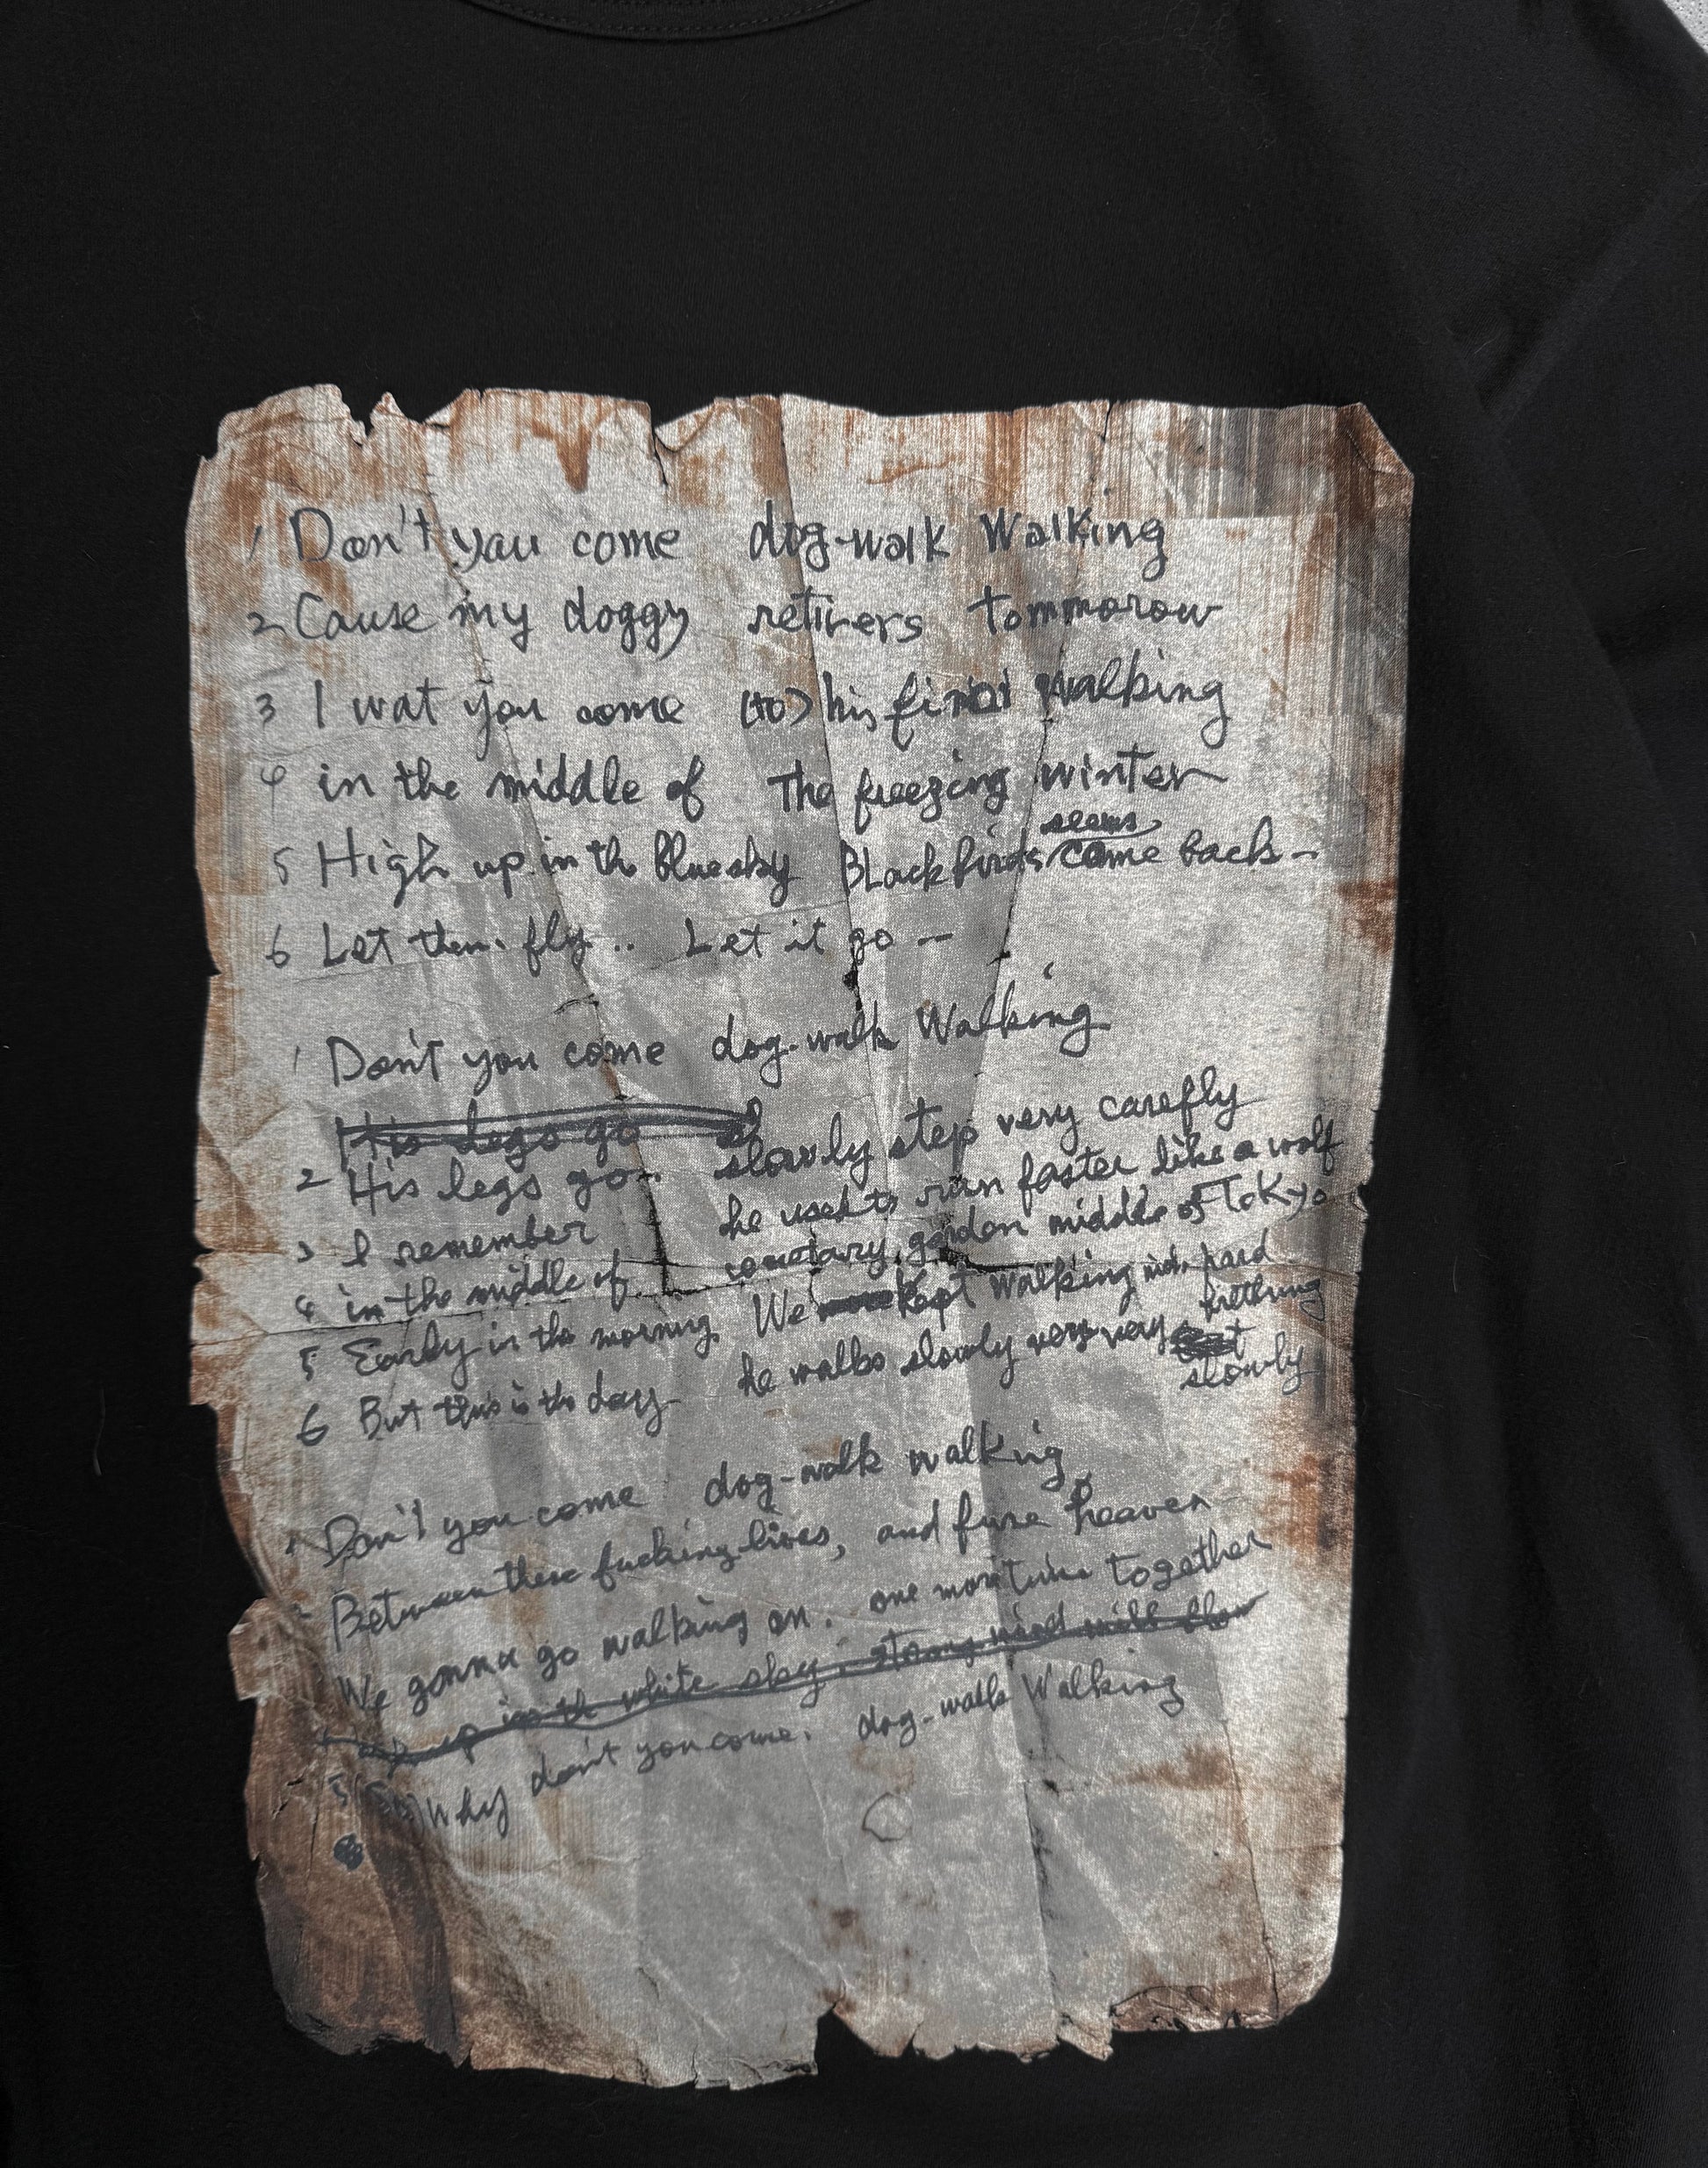 1 Don't you come dog-walk Walking
2 Cause my doggy retirers tommorow
3 I wat you come (to) his final walking
4 in the middle of The freezing winter
5 High up in th blue sky Black birds seems come back -
6 Let them fly .. Let it go -
1 Don't you come dog-walk Walking
His legs go
2 His legs go slowly step very carefly
3 I remember he used to run faster like a wolf
4 in the middle of cemetary garden middle of Tokyo
5 Early in the morning We kept walking with hard brething
6 But this is the day he walks slowly very very slowly
1 Don't you come dog-walk walking
Between these fucking lives, and heaven
We gonna go walking on. one more time together
up in th white sky. strong wind will blow
5 Why don't you come. dog-walk Walking